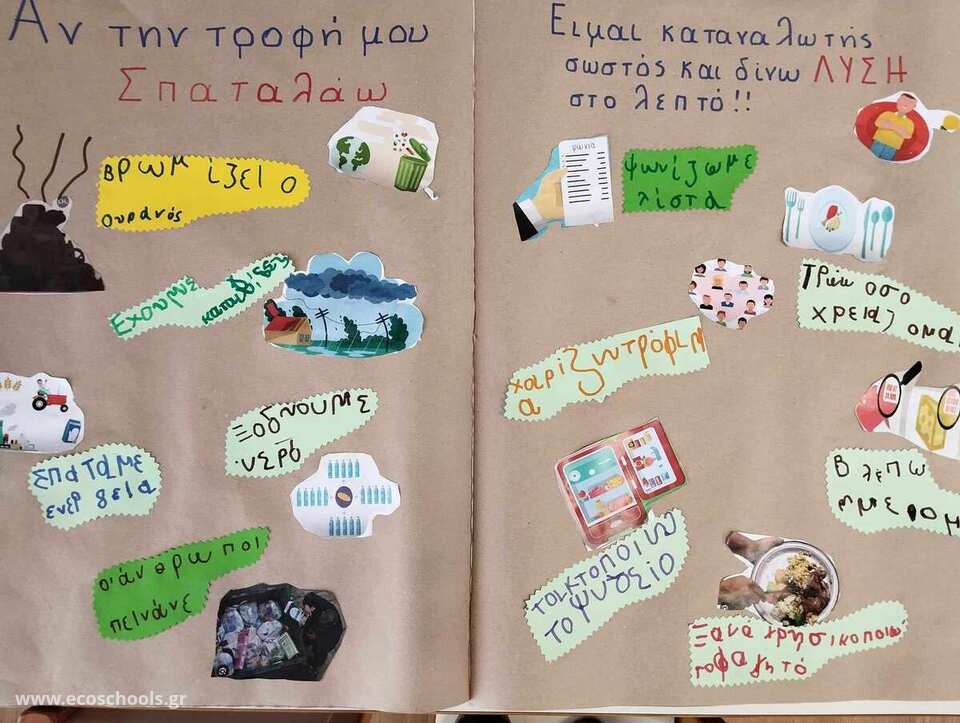 Αν την τροφή μου
Σπαταλάω
Βρωμ ίζει ο
ουρανός
Εχουμυε
καταιγίδες
Ξοδνουμε
νερό
Σπαταμε
ενεργεια
οι άνθρωποι
πεινάνε
Ειμαι καταναλωτής
σωστός και δίνω ΛΥΣΗ
στο λεπτό!!
ψώνια
Ψωνίζωμε
λίστα
Τρώω οσο
χρειαζομα
χαρίζω τρόφιμ
α
Βλεπω
ημερομ
τακτοποιω
το ψυγείο
Ξαναχρησικοποιω
το φαγητό
www.ecoschools.gr